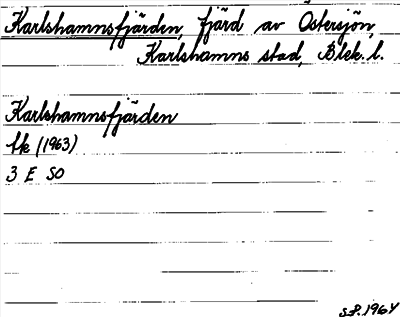 Karlshamnsfjärden, fjärd av Östersjön,
Karlshamns stad, Blek. l.
Karlshamnsfjärden
tk (1963)
3 E SO
S.P. 1964